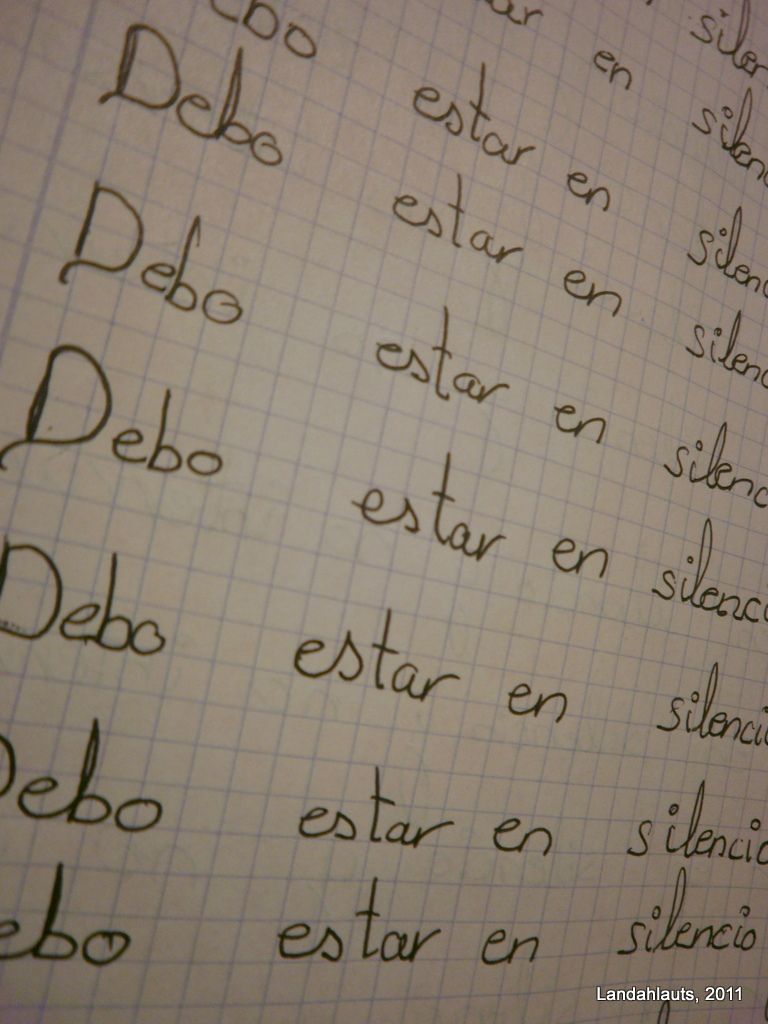 silen
ar en silen
ebo estar en silenc
Debo estar en silenc
Debo estar en silenc
Debo estar en silenci
Debo estar en silencio
Debo estar en silencio
ebo estar en silencio
Landahlauts, 2011